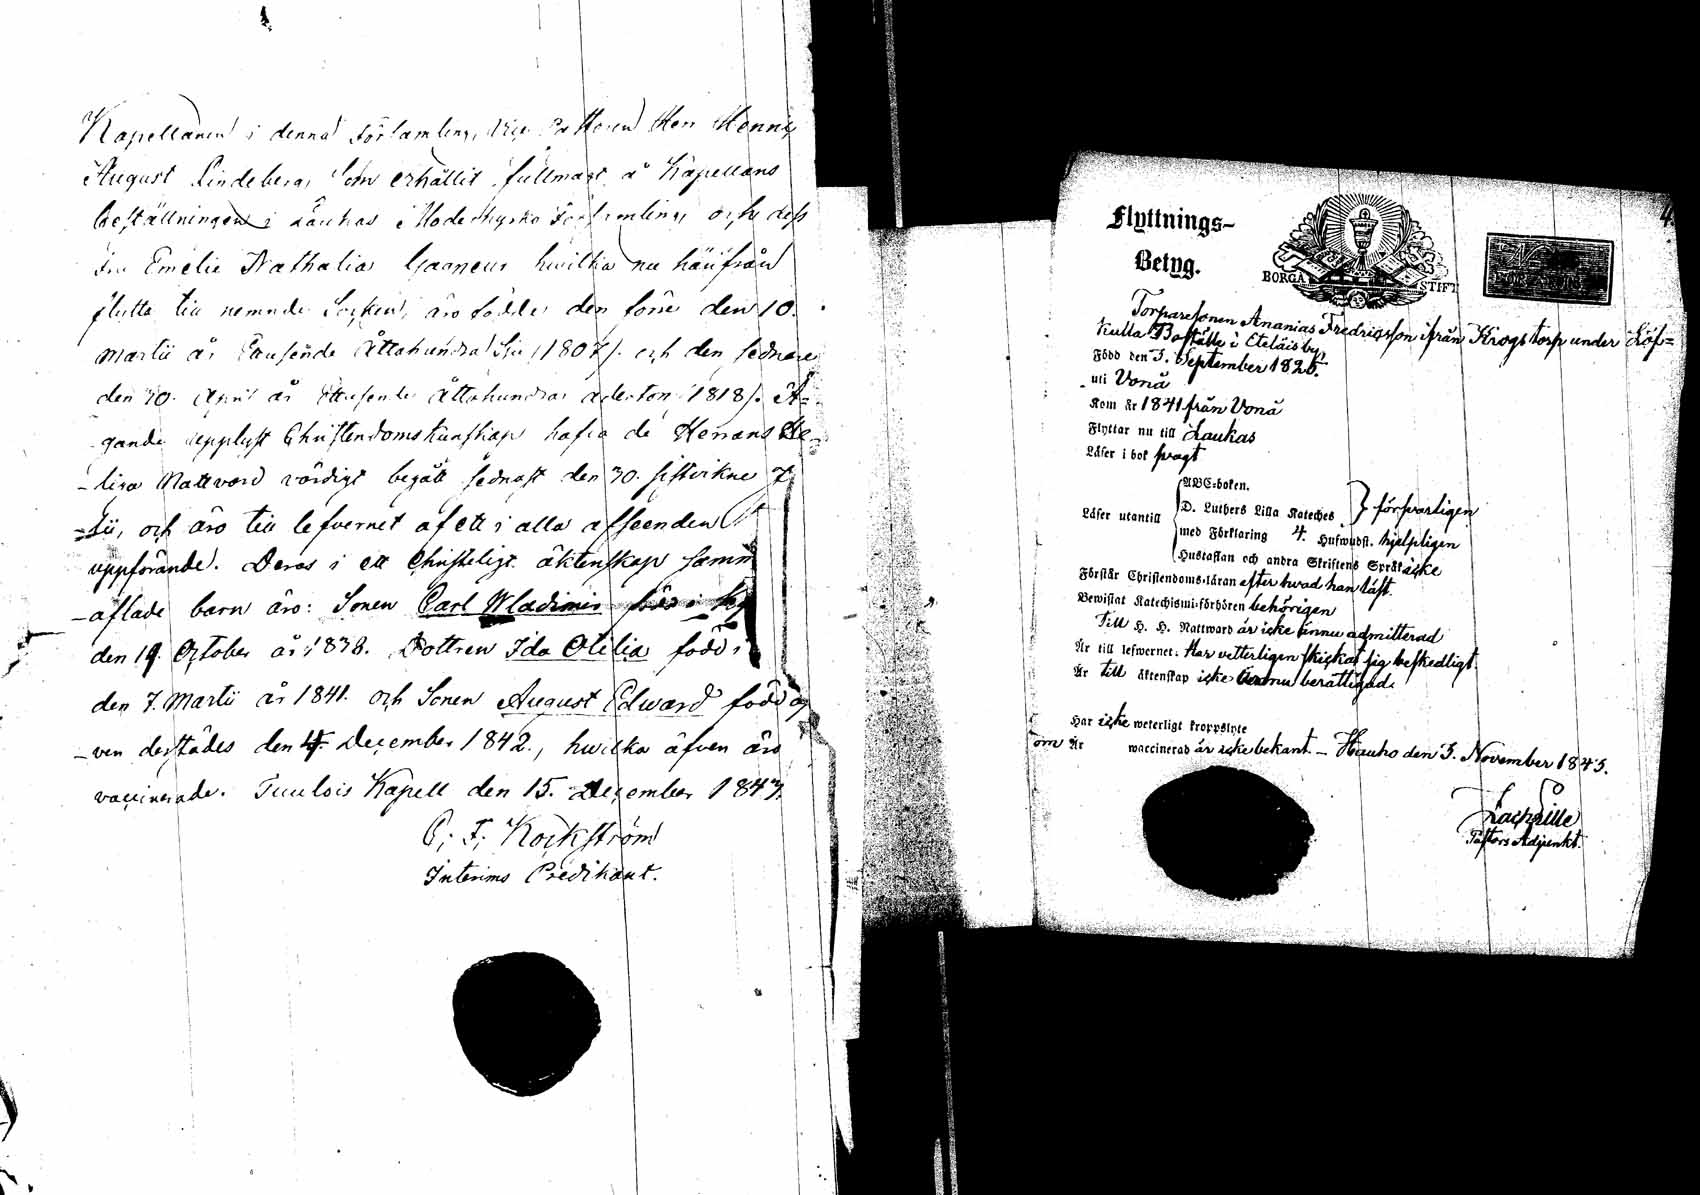 Kapellanen i denna Församling, Vice Pastoren Herr Henric
August Lindeberg, som erhållit fullmagt å Kapellans
beställningen i Laukas Moderkyrko Församling och dess
Fru Emelie Nathalia hwilka nu härifrån
flytta till nemnde Socken, äro födde den förre den 10.
Martii år Ettusende Åttahundra Sju /1807/. och den sednare
den 30. April år Ettusende Åttahundra aderton /1818/. Ä-
gande upplyst Christendoms kunskap hafva de Herrans He-
-liga Nattvard värdigt begått sednast den 30. sistvikne
och äro till lefvernet af ett i alla afseenden
uppförande. Deras i ett Christeligt äktenskap samm
-aflade barn äro: Sonen Carl Wladimir född i
den 19. October år 1838. Dottren Ida Otilia född i
den 7. Martii år 1841. och Sonen August Edward född äf
-ven derstädes den 4. December 1842., hwilka äfven äro
vaccinerade. Tuulois Kapell den 15. December 1843.
C. F. Kockström
Interims Predikant.
4
Flyttnings-
Betyg.
BORGÅ STIFT
Torparesonen Ananias Fredricsson ifrån Krogstorp under Löf=
kulla Boställe i Eteläis by.
Född den 5. September 1826.
uti Vonå
Kom år 1841 från Vonå
Flyttar nu till Laukas
Läser i bok svagt
ABC-boken.
D. Luthers Lilla Kateches } försvarligen
Läser utantill
med Förklaring 4. Hufwudst. hjelpligen
Hustaflan och andra Skriftens Språk icke
Förstår Christendoms-läran efter hvad han läst.
Bewistat Katechismi-förhören behörigen
Till H. H. Nattward är icke ännu admitterad
Är till lefwernet: Har vetterligen skickat sig beskedligt.
Är till äktenskap icke ännu berättigad.
Har icke weterligt kroppslyte
om Är waccinerad är icke bekant. _ Hauho den 3. November 1843.
Pastors Adjunkt.